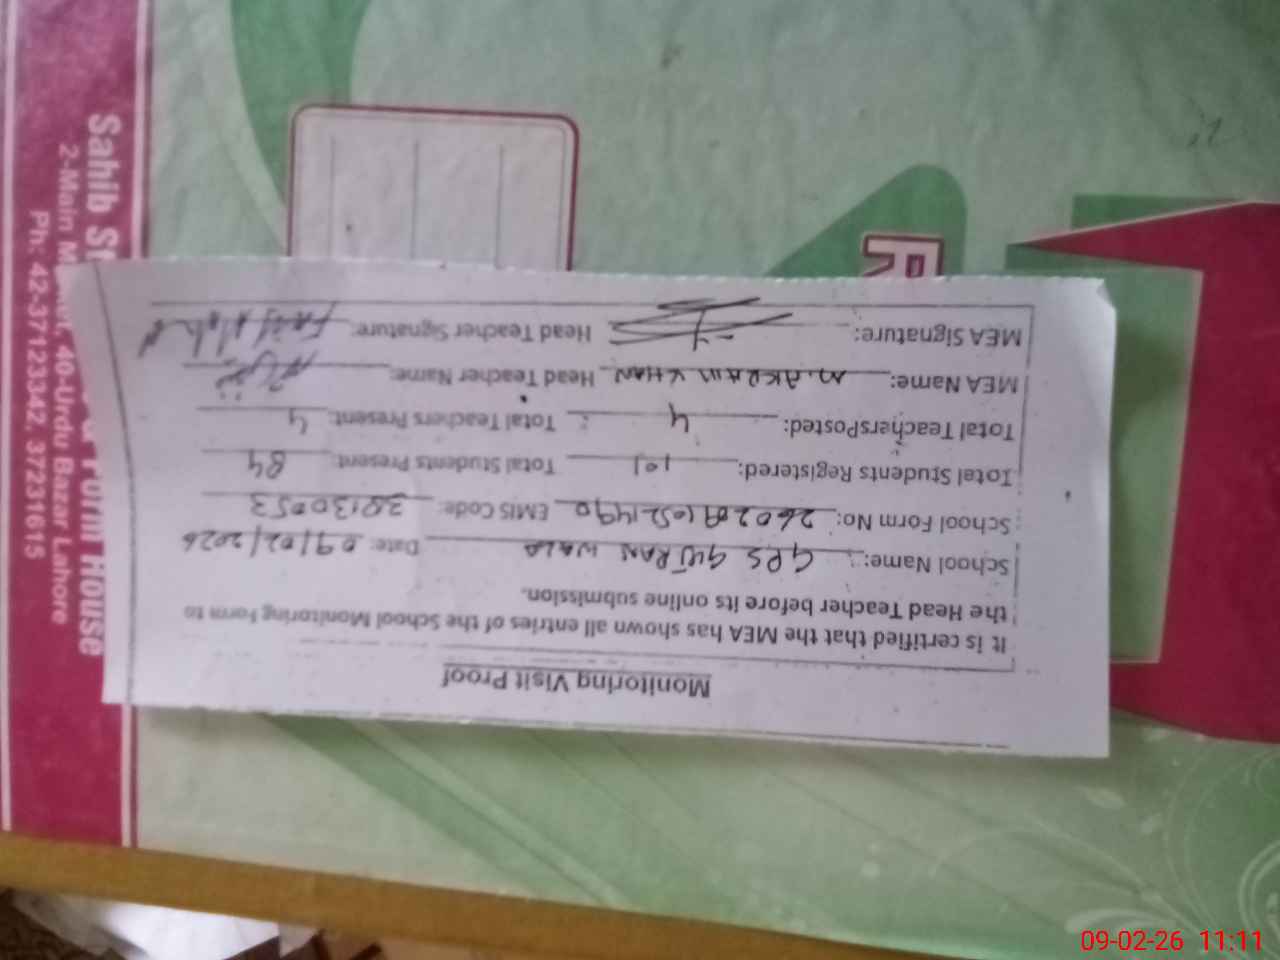 Monitoring Visit Proof
It is certified that the MEA has shown all entries of the School Monitoring Form to
the Head Teacher before its online submission.
School Name: GPS GUJRAN WALA Date: 09/02/2026
School Form No: EMIS Code: 38130053
Total Students Registered: 101 Total Students Present: 84
Total TeachersPosted: 4 Total Teachers Present: 4
MEA Name: M. AKRAM KHAN Head Teacher Name:
MEA Signature: Head Teacher Signature:
Sahib
Form House
2-Main
40-Urdu Bazar Lahore
Ph: 42-37123342, 37231615
R
09-02-26 11:11